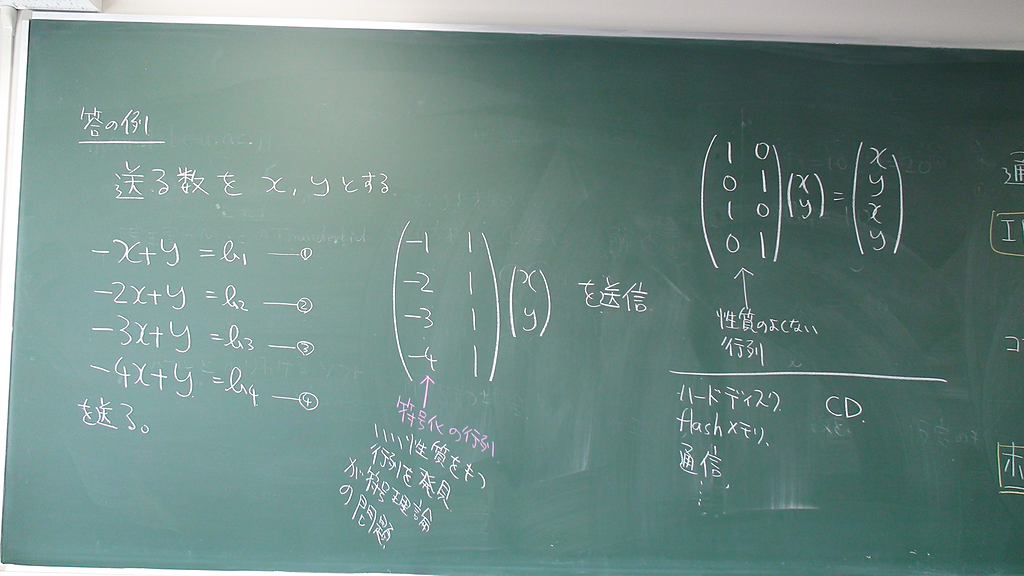 答の例
送る数を x, y とする
-x+y = b₁ ―①
-2x+y = b₂ ―②
-3x+y = b₃ ―③
-4x+y = b₄ ―④
を送る。
-1 1
-2 1
-3 1
-4 1
x
y
を送信
符号化の行列
いい性質をもつ
行列を発見
が符号理論
の問題
1 0
0 1
1 0
0 1
x
y
=
x
y
x
y
性質のよくない
行列
ハードディスク CD
flachメモリ
通信
⋮
通